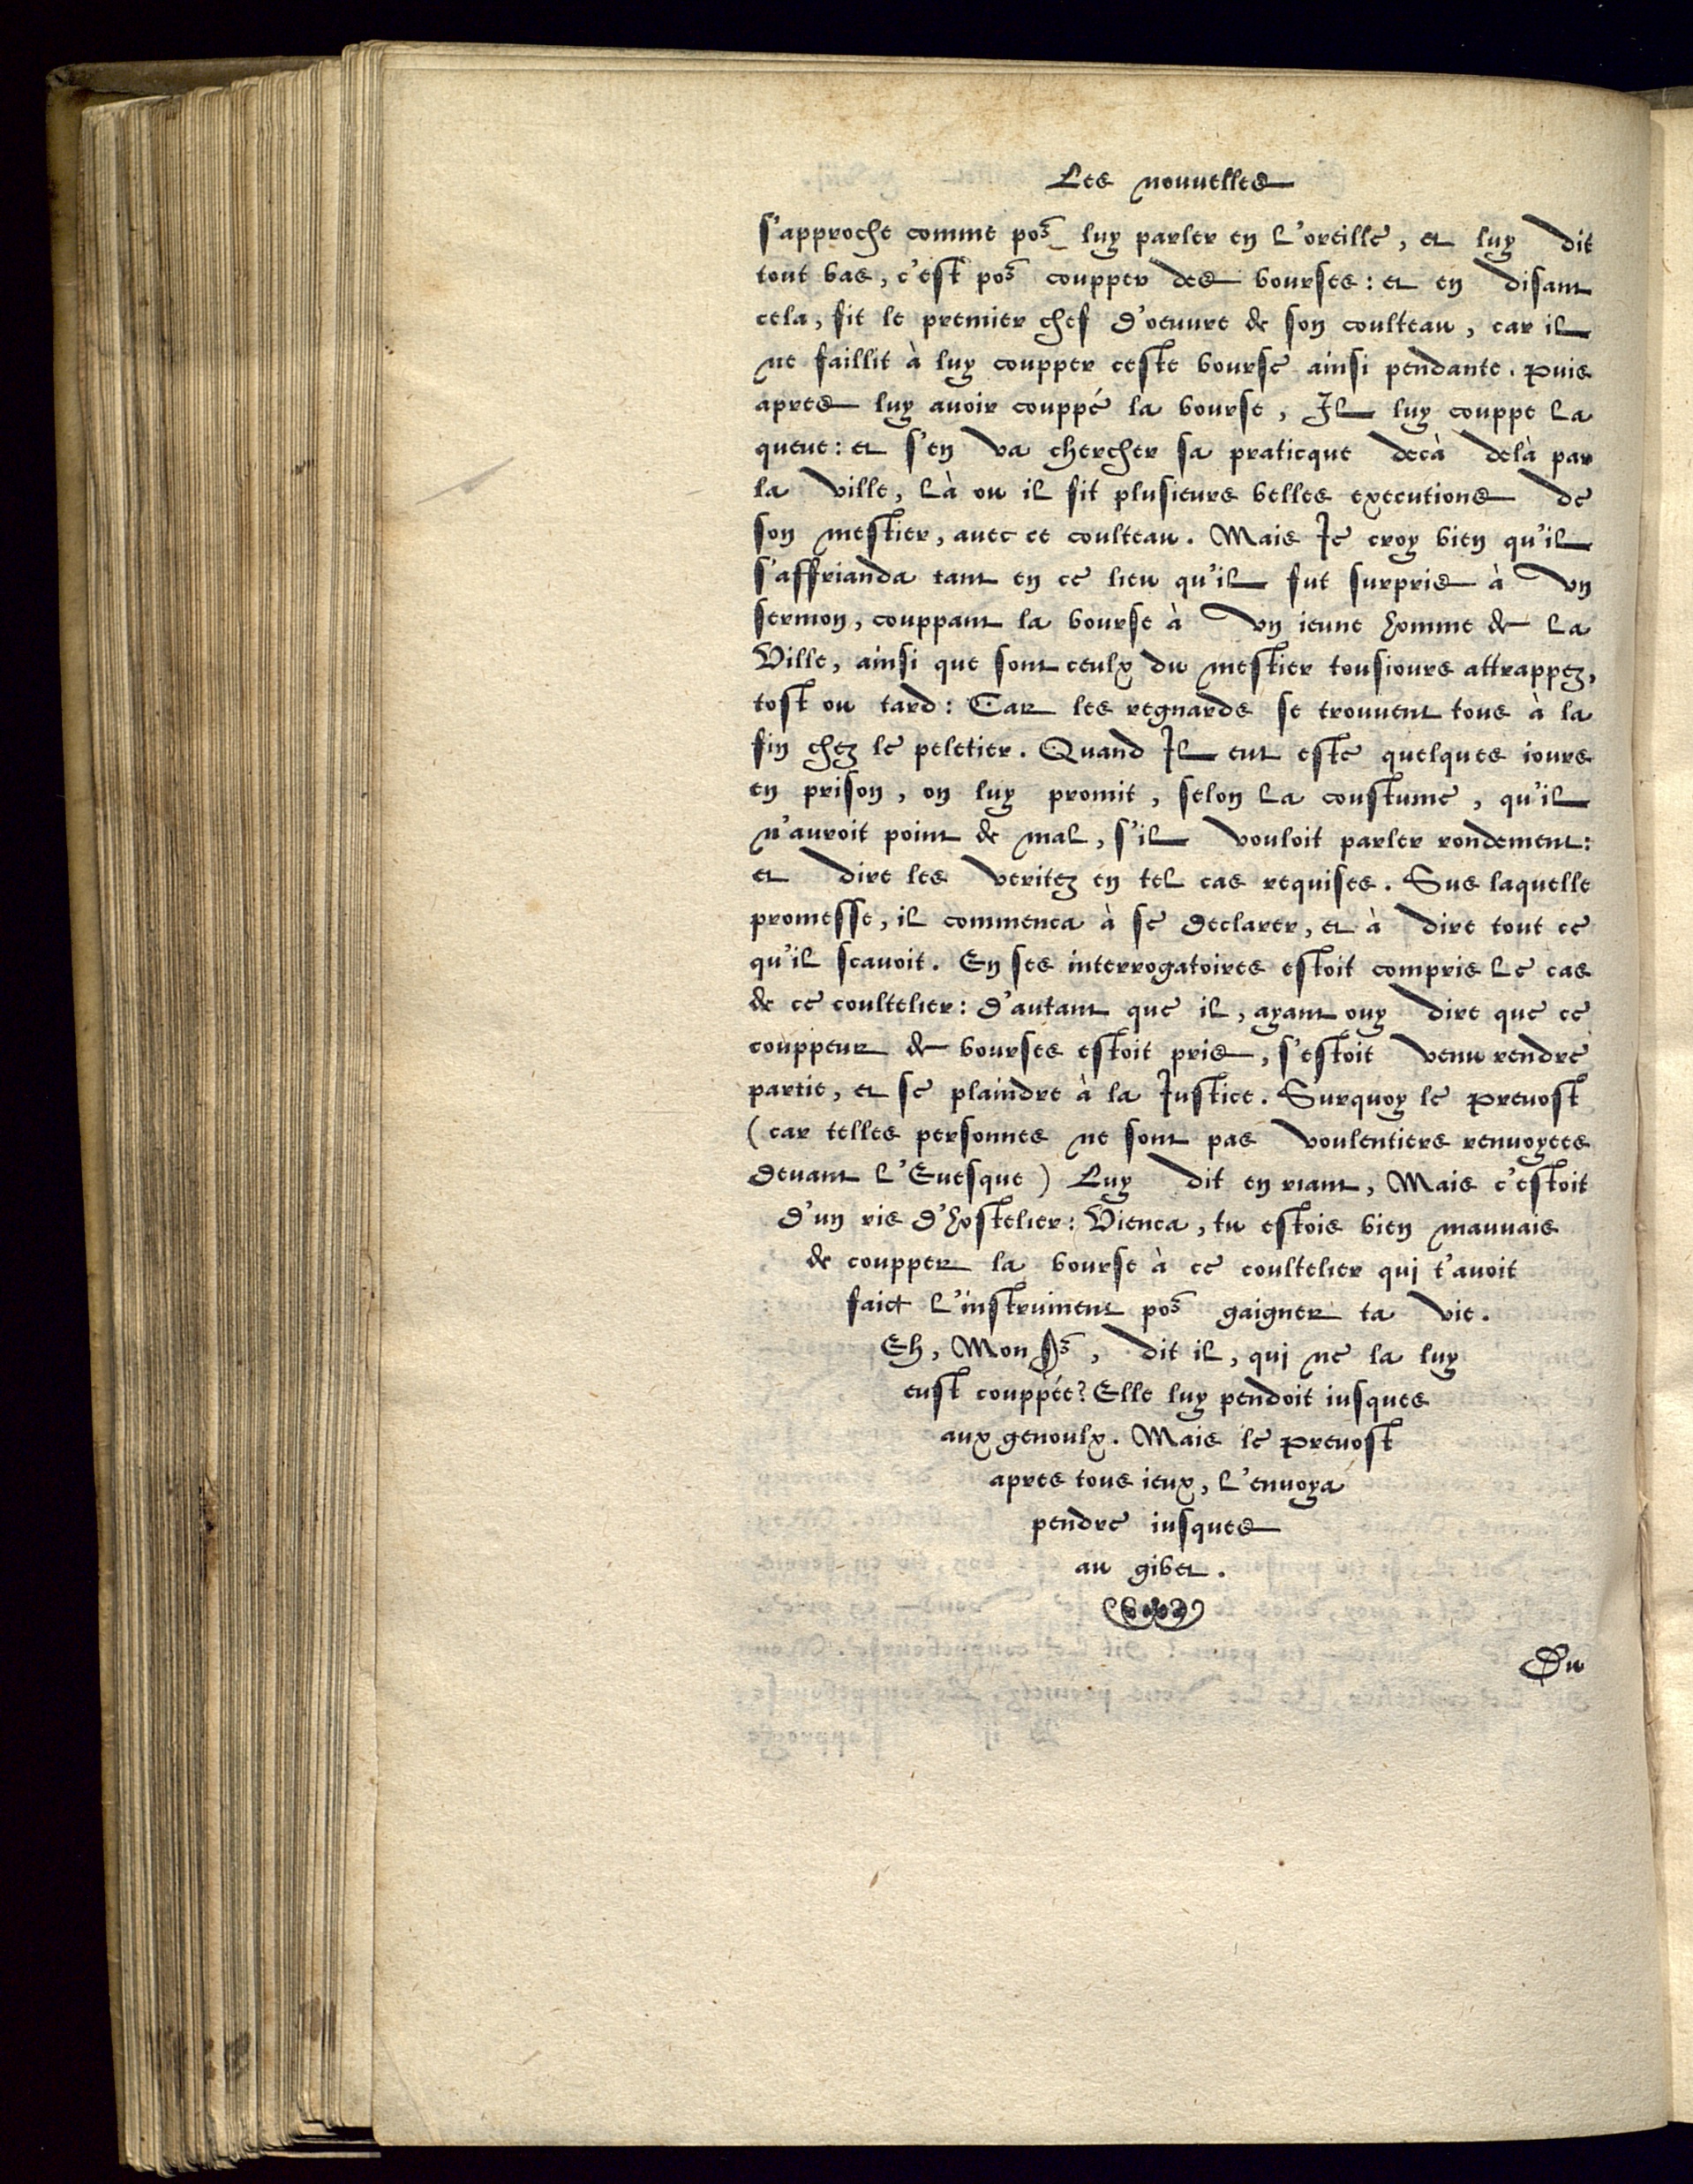 Les nouvelles
s'approche comme po^r luy parler en l'oreille, et luy dit
tout bas, c'est po^r coupper des bourses: et en disant
cela, fit le premier chef d'oeuure de son coulteau, car il
ne faillit à luy coupper ceste bourse ainsi pendante. Puis
apres luy auoir couppé la bourse, Il luy couppe la
queue: et s'en va chercher sa praticque decà delà par
la ville, là ou il fit plusieurs belles executions de
son mestier, auec ce coulteau. Mais Ie croy bien qu'il
s'affrianda tant en ce lieu qu'il fut surpris à vn
sermon, couppant la bourse à vn ieune homme de la
Ville, ainsi que sont ceulx du mestier tousiours attrappez,
tost ou tard: Car les regnards se trouuent tous à la
fin chez le peletier. Quand Il eut esté quelques iours
en prison, on luy promit, selon la coustume, qu'il
n'auroit point de mal, s'il vouloit parler rondement:
et dire les veritez en tel cas requises. Sus laquelle
promesse, il commenca à se declarer, et à dire tout ce
qu'il scauoit. En ses interrogatoires estoit compris le cas
de ce coultelier: d'autant que il, ayant ouy dire que ce
couppeur de bourses estoit pris, s'estoit venu rendre
partie, et se plaindre à la Iustice. Surquoy le Preuost
(car telles personnes ne sont pas voulentiers renuoyees
deuant l'Euesque) Luy dit en riant, Mais c'estoit
d'un ris d'hostelier: Vienca, tu estois bien mauuais
de coupper la bourse à ce coultelier qui t'auoit
faict l'instrument po^r gaigner ta vie.
Eh, Mons^r, dit il, qui ne la luy
eust couppée? Elle luy pendoit iusques
aux genoulx. Mais le Preuost
apres tous ieux, l'enuoya
pendre iusques
au gibet.
Du